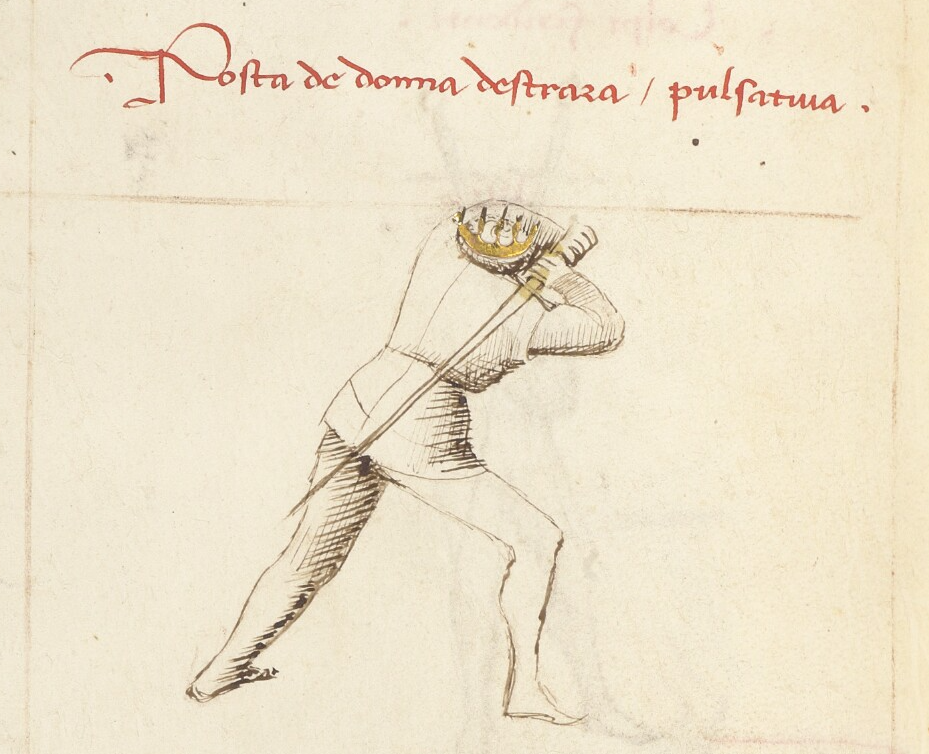 . Posta de donna destraza / pulsatiua .